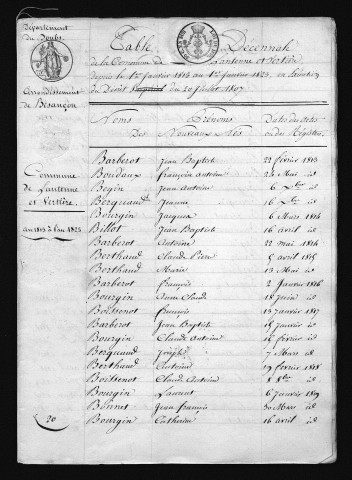 Département
du Doubs
Arrondissement
de Besançon
Commune
de Lantenne
et Vertière
An 1813 à l'an 1823
20
Table Décennale
de la Commune de Lantenne et Vertière
depuis le 1er Janvier 1813 au 1er Janvier 1823, en Exécution
du Décret du 20 Juillet 1807
Noms Prénoms Dates des Actes
Des Nouveaux Nés ou des Registres
Barberot Jean Baptiste 22 février 1813
Boudaux françois Antoine 24 Mai id
Begin Jean Antoine 6 id
Berguand Jeanne 16 id
Bourgin Jacques 6 Mars 1814
Billot Jean Baptiste 16 avril id
Barberot Antoine 22 mai 1814
Berthaud Claude Pierre 5 avril 1815
Berthaud Marie 13 Mai id
Barberot françois 2 Janvier 1816
Bourgin Anne Claude 18 Juin id
Boitsenot françois 13 Janvier 1817
Barberot Jean Baptiste 15 Janvier id
Bourgin Claude Antoine 12 février id
Berguand Joseph 7 Mars id
Berthaud Antoine 19 février 1818
Boitsenot Claude Antoine 8 8bre id
Bourgin Laurent 6 Janvier 1819
Bonnet Jean françois 30 Mars id
Bourgin Catherine 16 avril id